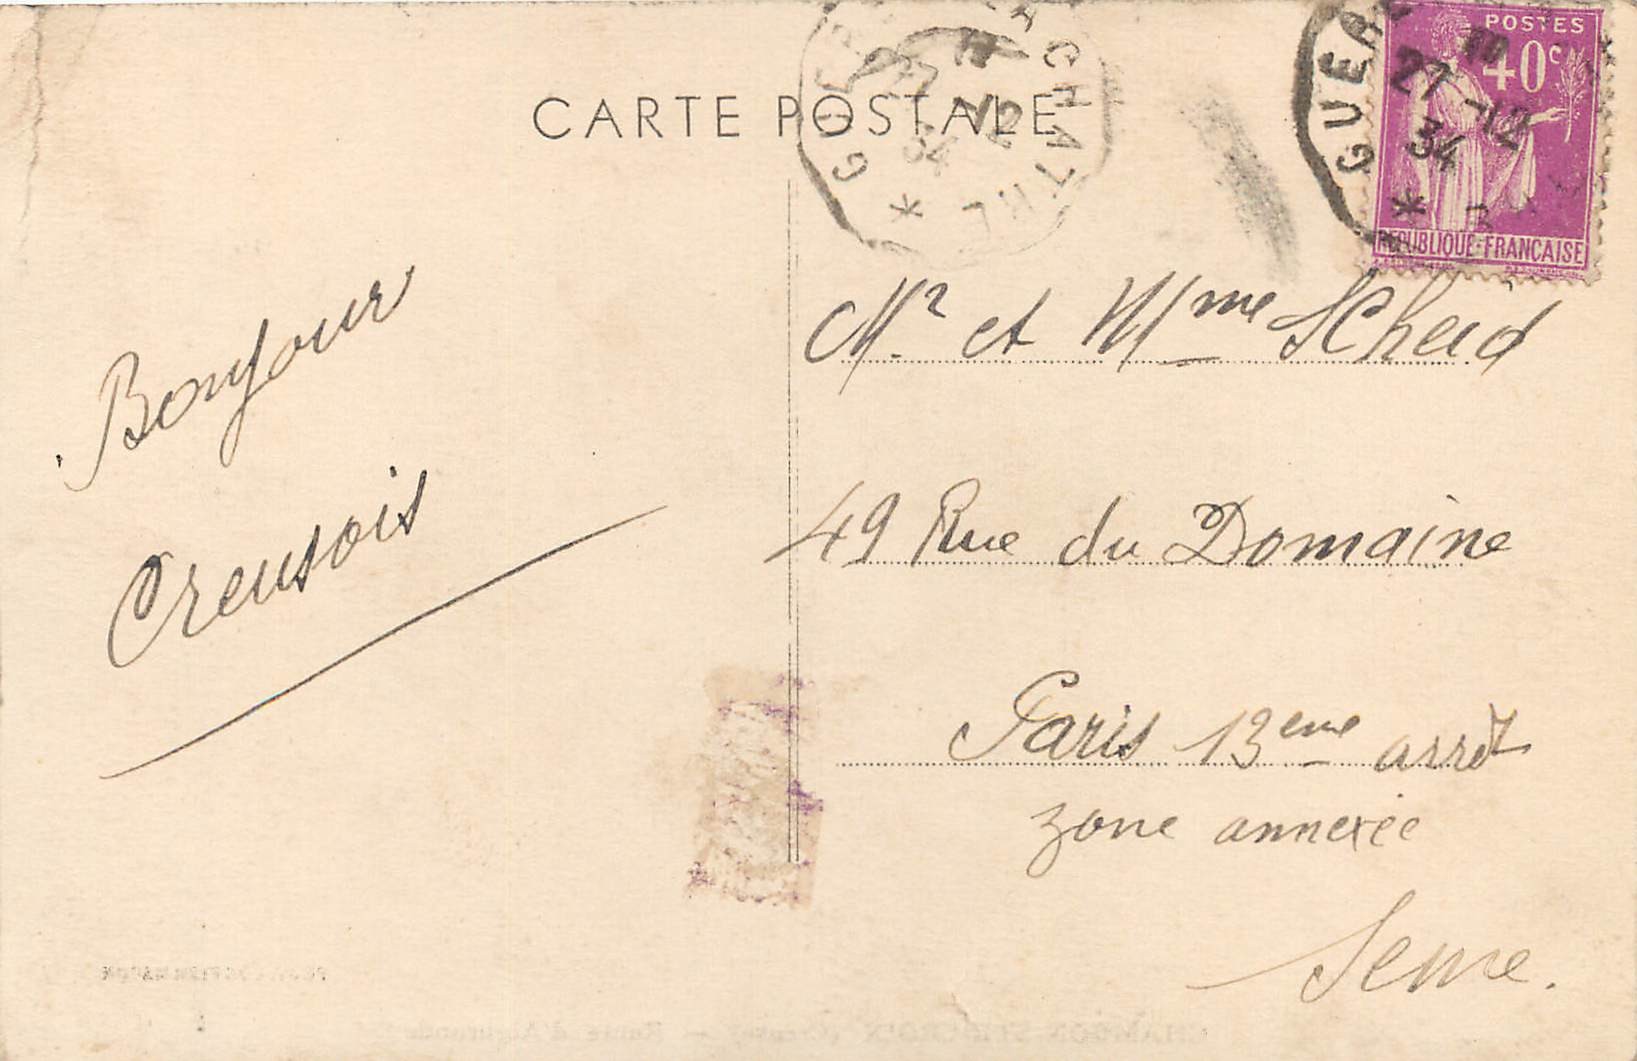 CARTE POSTALE
POSTES
40c
REPUBLIQUE·FRANCAISE
GUER LACHATRE
27 -12
34
*
GUER
10
27 -12
34
*
Bonjour
Creusois
Mr et Mme Scheid
49 Rue du Domaine
Paris 13eme arrdt
zone annexée
Seine.